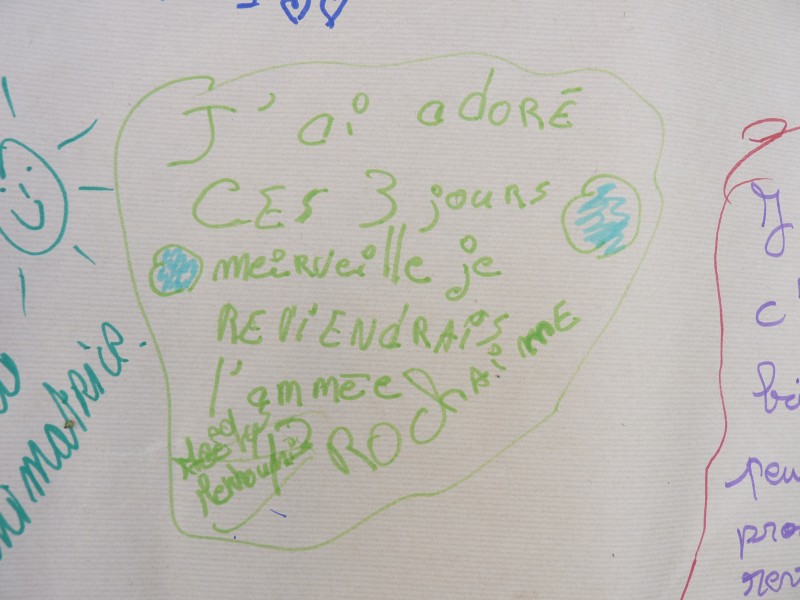 J'ai adoré
CES 3 jours
meirveille je
REVIENDRAIS
l'ammée
ROCHAINNE
nimatrice.
J
c'
bi
peu
pro